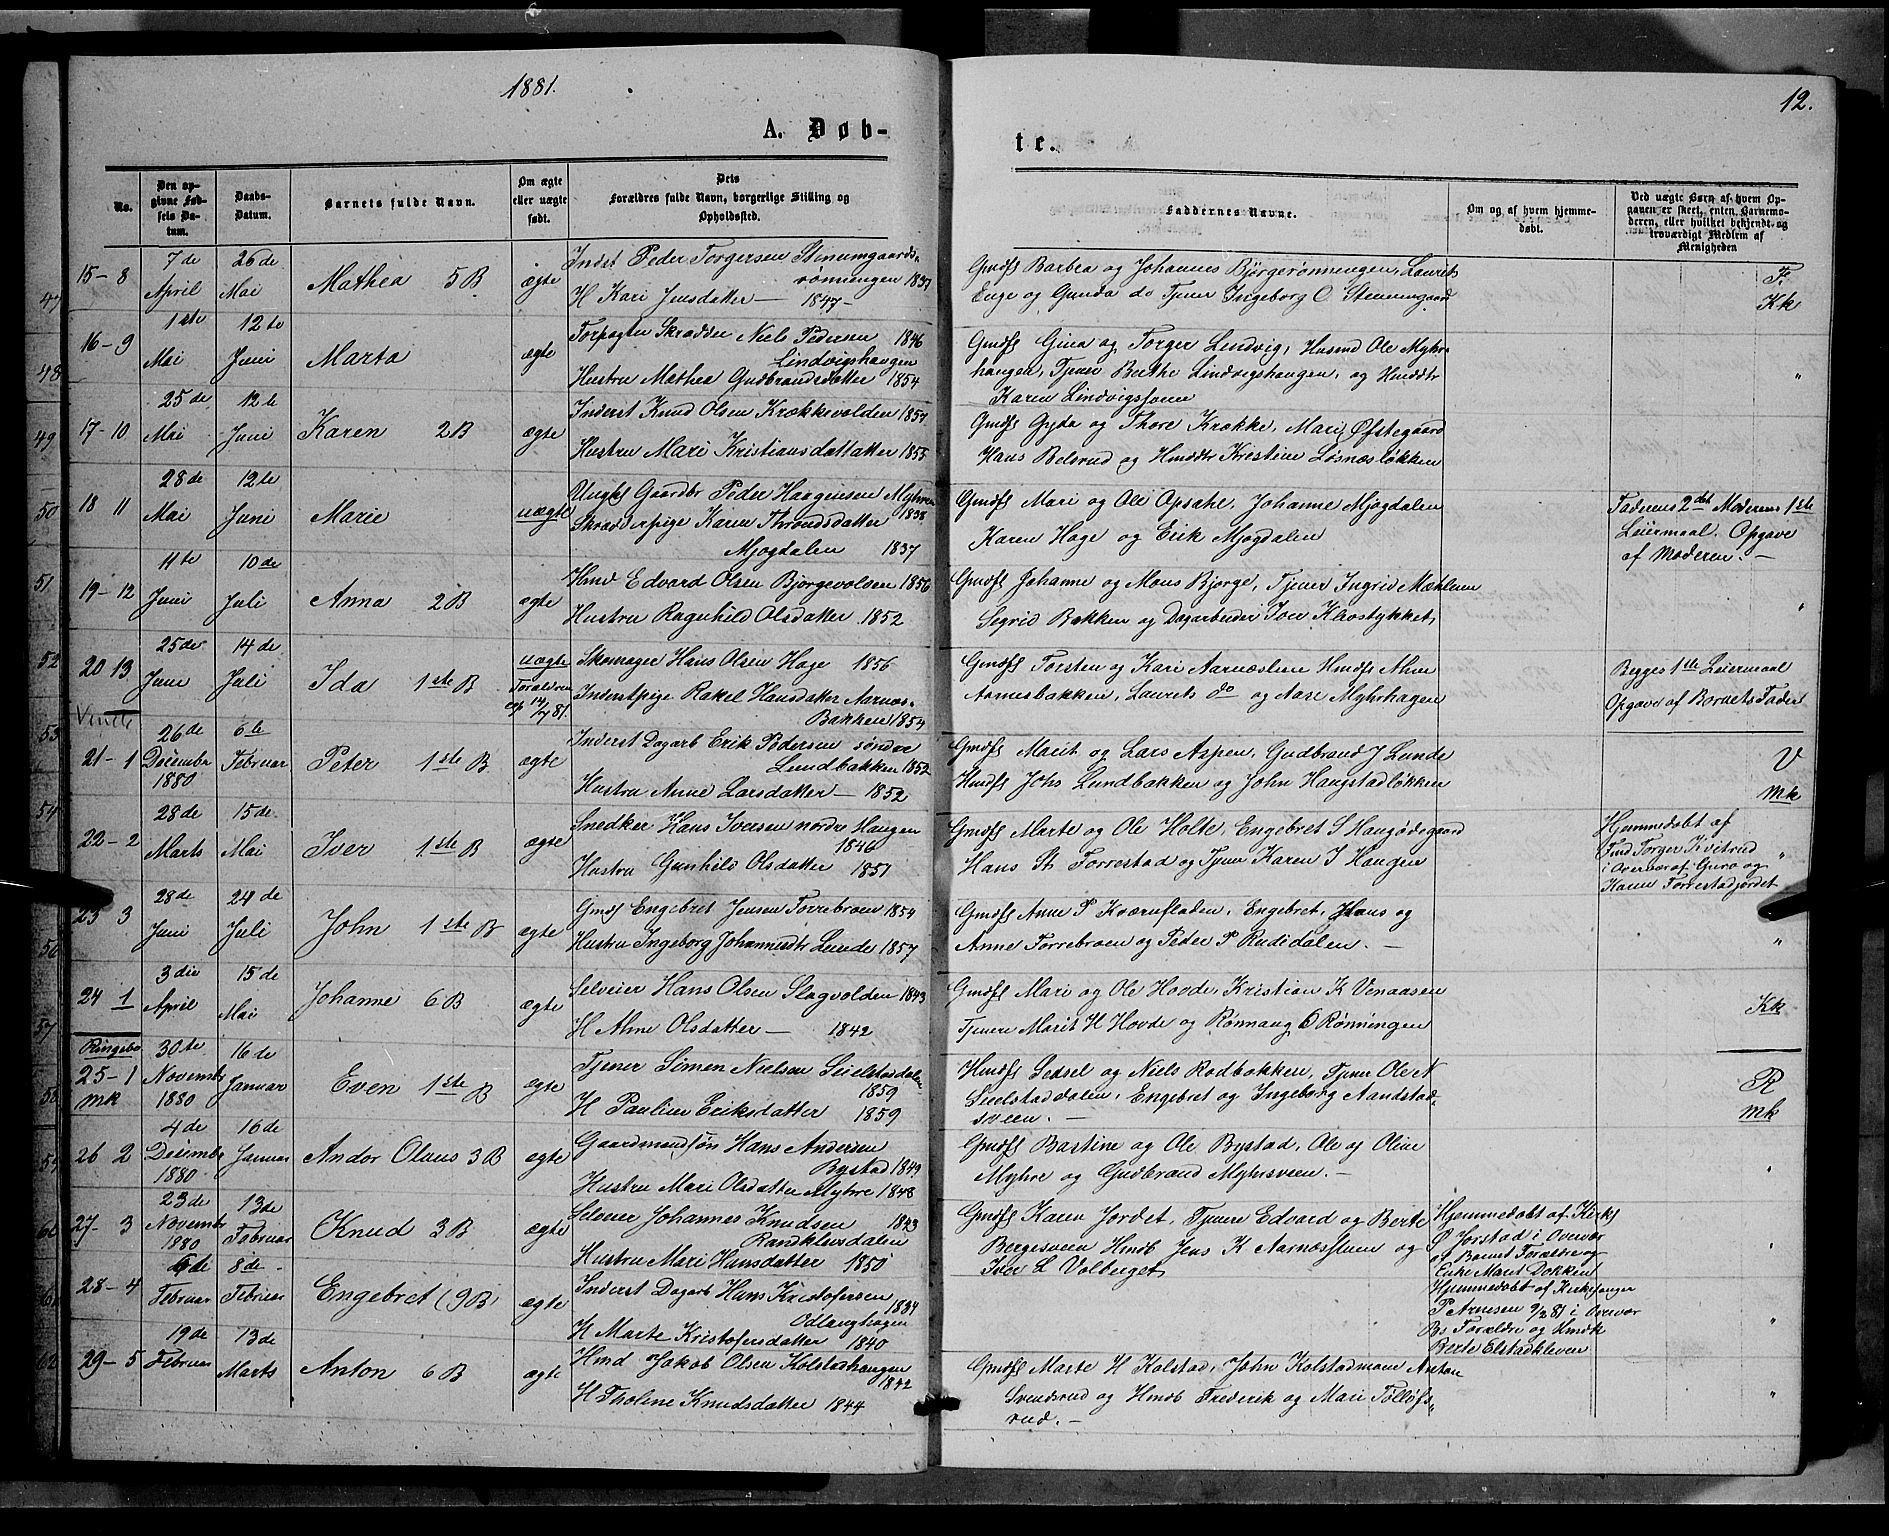 1881.
12.
A. Døb-
te.
No.
Den op-
givne Fød-
sels Da-
tum.
Daabs-
Datum.
Barnets fulde Navn.
Om ægte
eller uægte
født.
Dets
Forældres fulde Navn, borgerlige Stilling og
Opholdssted.
Faddernes Navne.
Om og af hvem hjemme-
døbt.
Ved uægte Børn af hvem Op-
gaven er skeet, enten Barnemo-
deren, eller hvilket bekjendt og
troværdigt Medlem af
Menigheden
15-8
7de April
26de Mai
Mathea 5B
ægte
Inderst Peder Torgersen Stenumgaards-
rønningen 1837
H Kari Jensdatter — 1847-
Gmdfk Barbra og Johannes Bjørgerønningen, Laurits
Enge og Gunda do Tjener Ingeborg O. Stenumgaard
F.
Kk
16-9
1ste Mai
12te Juni
Marta
ægte
Forpagter Skrædder Niels Pedersen 1846
Lindvigshaugen
Hustru Mathea Gudbrandsdatter 1854
Gmdfk Gina og Torger Lindvig, Husmd Ole Myhr-
haugen, Tjener Berthe Lindvigshaugen, og Hmddtr
Karen Lindvigssveen
"
17-10
25de Mai
12te Juni
Karen 2B
ægte
Inderst Knud Olsen Krækkevolden 1857
Hustru Mari Kristiansdattatter 1855
Gmdfk Gyda og Thore Krække, Mari Øfstegaard
Hans Belsrud og Hmddtr Kristine Løsnæsløkken
18 11
28de Mai
12te Juni
Marie
uægte
Ungkl Gaardbr Peder Haagensen Myhren
1838
Skræderpige Karen Throndsdatter
Mjogdalen 1837
Gmdfk Mari og Ole Opsahl, Johanne Mjogdalen
Karen Hage og Erik Mjogdalen
Faderens 2det Moderens 1ste
Leiermaal. Opgave
af Moderen. —
19-12
11te Juni
10de Juli
Anna 2B
ægte
Hmd Edvard Olsen Bjørgevolden 1856
Hustru Ragnhild Olsdatter 1852
Gmdfk Johanne og Mons Bjørge, Tjener Ingrid Mæhlum
Sigrid Bakken og Dagarbeider Iver Klostykket
"
20 13
25de Juni
14de Juli
Ida 1ste B
uægte
Forældren
op 14/7 81.
Skomager Hans Olsen Hage 1856
Inderstpige Rakel Hansdatter Aarnæs-
Bakken 1854
Gmdfk Torsten og Kari Aarnæslien Hmdfk Ahne
Aarnesbakken, Laurits do og Aase Myhrhagen
Begges 1ste Leiermaal
Opgave af Barnets Fader
Venele
21-1
26de Decembr 1880
6te Februar
Peter 1ste B
ægte
Inderst Dagarb Erik Pedersen søndre
Lundbakken 1852
Hustru Anne Larsdatter — 1852
Gmdfk Marit og Lars Aspen, Gudbrand J Lunde
Hmdfk Johs Lundbakken og John Haugstadløkken
V
Mk
22-2
28de Marts
15de Mai
Iver 1ste B
ægte
Snedker Hans Iversen nordre Haugen
1846
Hustru Gunhild Olsdatter 1851
Gmdfk Marte og Ole Holte, Engebret S Haugødegaard
Hans Th Forrestad og Tjener Karen I Haugen
Hjemmedøbt af
Ind Torger Kvitrud
i Overvær af Guro og
Karen Forrestadjordet
"
23 3
28de Juni
24de Juli
John 1ste B
ægte
Gmdf Engebret Jensen Forrebroen 1854
Hustru Ingeborg Johannesdtr Lunde 1857
Gmdfk Anne P Kværnfladen, Engebret, Hans og
Anne Forrebroen og Peder P Rudidalen. —
"
24 1
3die April
15de Mai
Johanne 6B
ægte
Selveier Hans Olsen Slagvolden 1843
H Ahne Olsdatter — 1842
Gmdfk Mari og Ole Hovde, Kristian K Venaasen
Tjenere Marit H Hovde og Rønnaug O Rønningen
Kk
Ringebo
25-1
mk
30te Novembr 1880
16de Januar
Even 1ste B
ægte
Tjener Simen Nielsen Seielstaddalen
1859
H Pauline Eriksdatter 1859
Hmdfk Sedsel og Niels Rodbakken, Tjener Ole N
Seielstaddalen, Engebret og Ingeborg Aandstad-
sveen. —
R
mk
26 2
4de Decembr 1880
16de Januar
Andor Olaus 3B
ægte
Gaardmandssøn Hans Andersen
Bystad 1849
Hustru Mari Olsdatter Myhre 1848
Gmdfk Bastine og Ole Bystad, Ole og Oline
Myhre og Gudbrand Myhrsveen. —
"
27-3
23de Novembr 1880
13de Februar
Knud 3B
ægte
Selveier Johannes Knudsen 1843
Randklevsdalen
Hustru Mari Hansdatter 1850
Gmdfk Karen Jordet, Tjenere Edvard og Berte
Bergesveen Hmdb Jens K Aarnæsstuen og
Iver L Volberget
Hjemmedøbt af Kirks
O Jorstad i Overvær
af Barnet Forældre og
Enke Marit Dokken
"
28-4
6de Februar
8de Februar
Engebret (9B)
ægte
Inderst Dagarb Hans Kristofersen
1834
Odlaughagen
H Marte Kristofersdatter 1840
Hjemmedøbt af Kirkesanger
P Arnesen 9/2 81 i Overvær
Bs Forældre og Hmdk
Berte Elstadkleven
"
29-5
19de Februar
13de Marts
Anton 6B
ægte
Hmd Jakob Olsen Kolstadhaugen
1842
H Tholine Knudsdatter 1844
Gmdfk Marte H Kolstad, John Kolstadmoen Anton
Svendsrud og Hmdb Frederik og Mari Tollofs-
rud. —
"
47
48
49
50
51
52
53
54
56
57
58
59
60
61
62